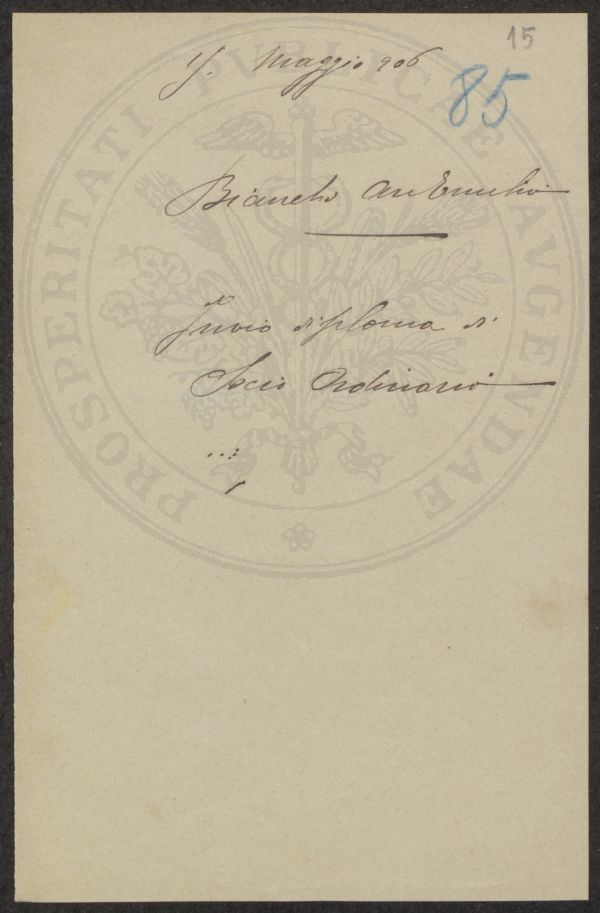 15
Maggio 906
85
Bianchi Emilio
Invio diploma di
Socio Ordinario
PROSPERITATI PUBLICAE AVGENDAE